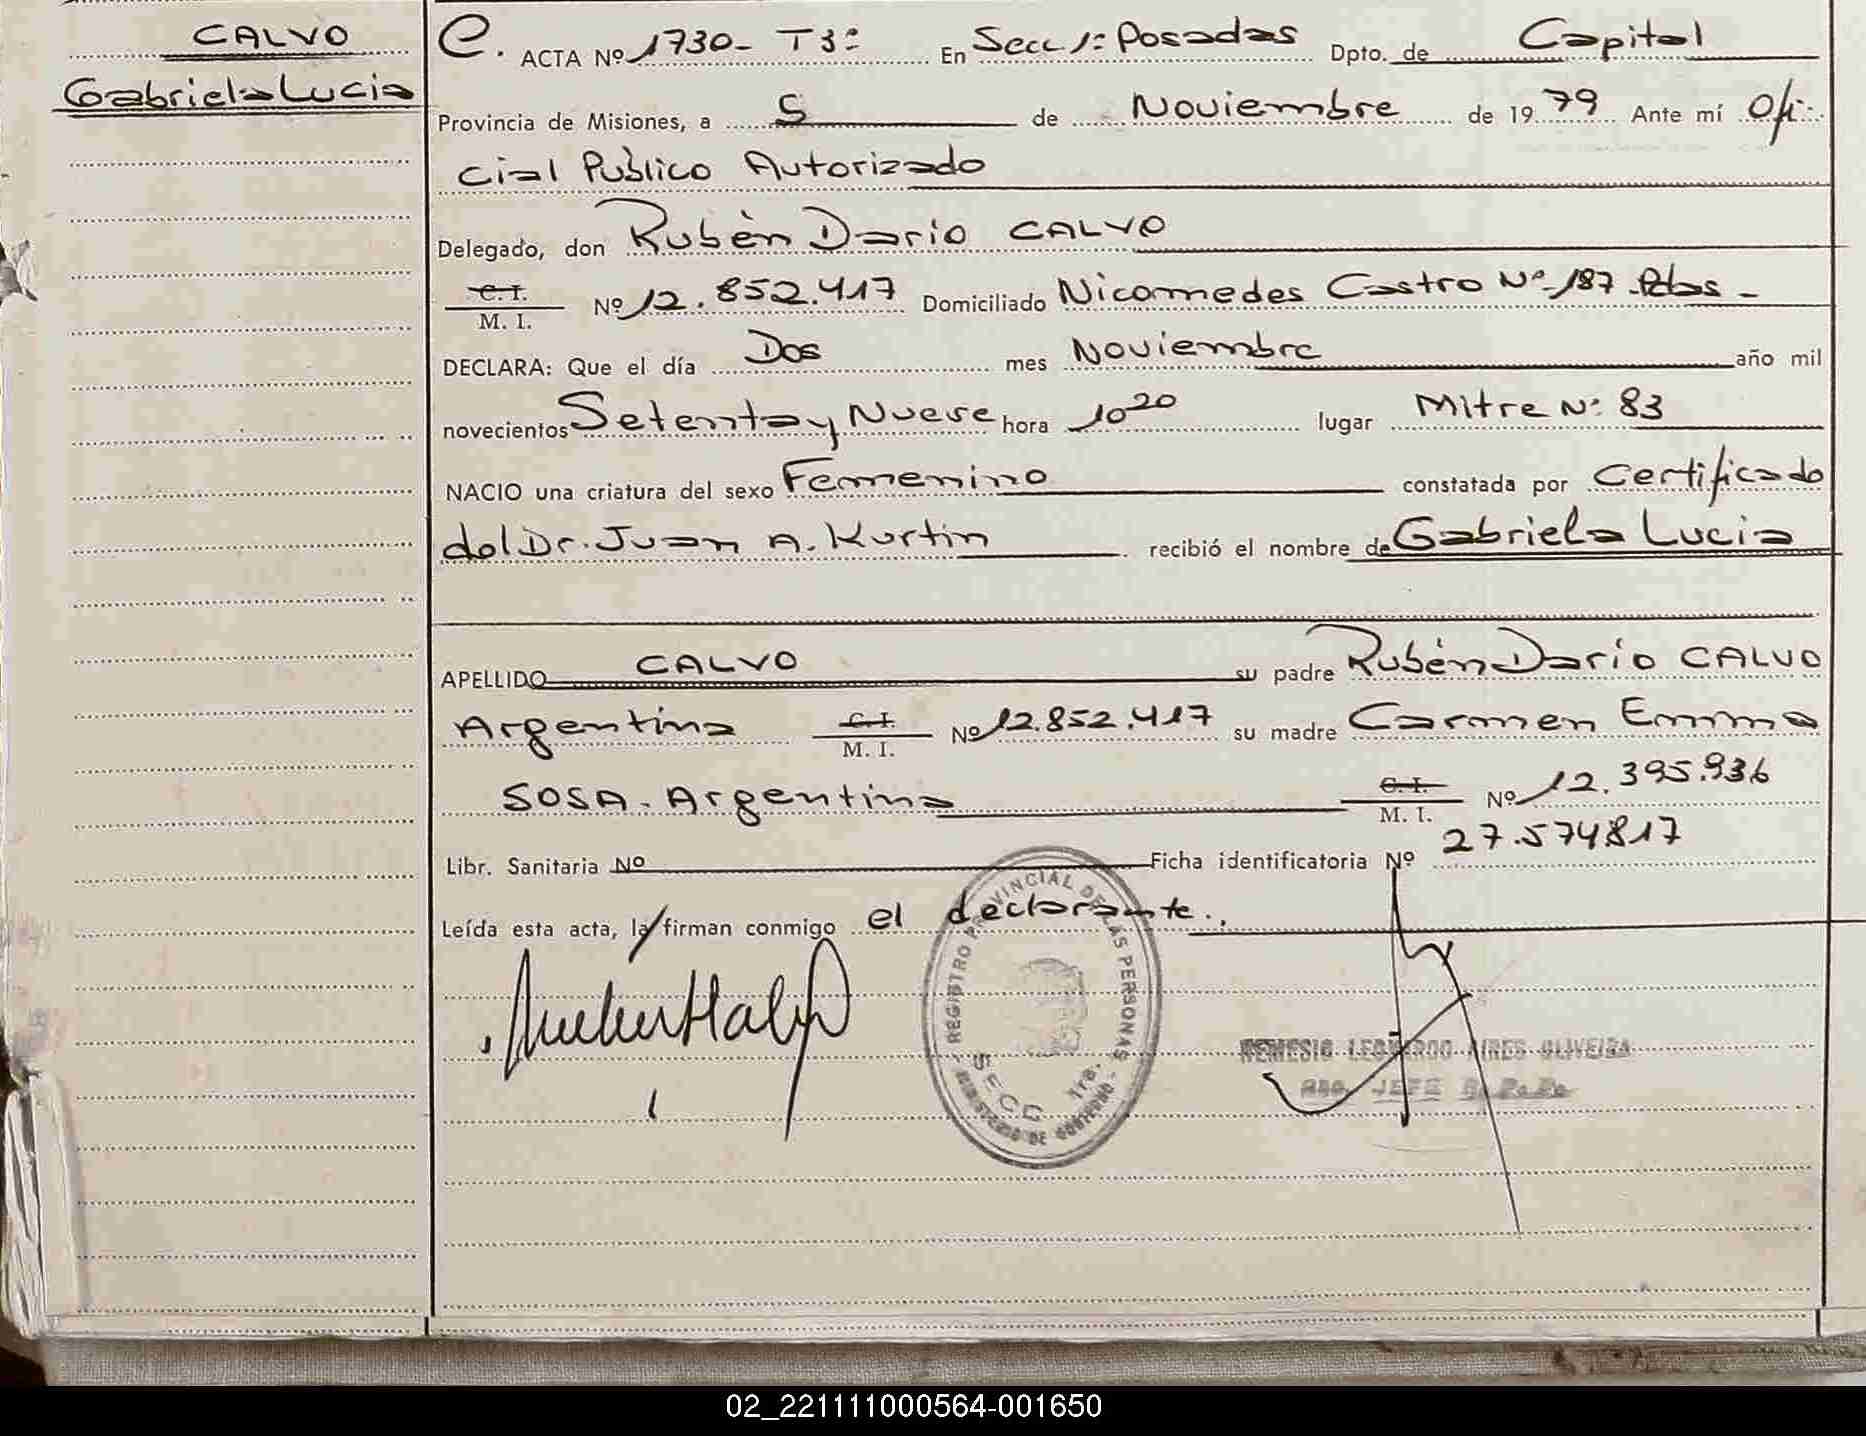 CALVO
Gabriela Lucia
C. ACTA Nº 1730- T 3º En Secc 1º Posadas Dpto. de Capital
Provincia de Misiones, a 5 de Noviembre de 1979 Ante mí Ofi-
cial Público Autorizado
Delegado, don Rubén Dario CALVO
C. I.
M. I. Nº 12.852.417 Domiciliado Nicomedes Castro Nº 187 Pdas -
DECLARA: Que el día Dos mes Noviembre año mil
novecientos Setenta y Nueve hora 10 20 lugar Mitre Nº 83
NACIO una criatura del sexo Femenino constatada por Certificado
del Dr. Juan A. Kurtin recibió el nombre de Gabriela Lucia
APELLIDO CALVO su padre Rubén Darío CALVO
Argentina C. I.
M. I. Nº 12.852.417 su madre Carmen Emma
SOSA. Argentina C. I.
M. I. Nº 12.395.936
Libr. Sanitaria Nº Ficha identificatoria Nº 27.574817
Leída esta acta, la firman conmigo el declarante.
REGISTRO PROVINCIAL DE LAS PERSONAS
SECC 1ra.
MINISTERIO DE GOBIERNO
NEMESIO LEONARDO AIRES OLIVEIRA
JEFE
02_221111000564-001650